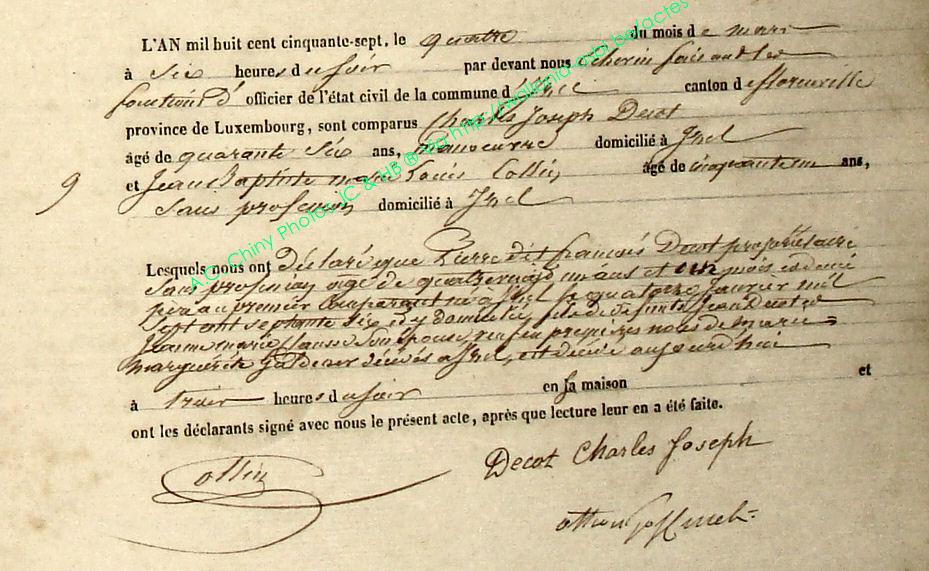 L'AN mil huit cent cinquante-sept, le quatre du mois de mars
à six heures du soir par devant nous échevin faisant les
fonctions d' officier de l'état civil de la commune d'Izel canton de florenville
province de Luxembourg, sont comparus Charles Joseph Decot
âgé de quarante six ans, manoeuvre domicilié à Izel
9 et Jean Baptiste Louis Collin âgé de cinquante un ans,
sans profession domicilié à Izel
Lesquels nous ont déclaré que Pierre dit françois Decot propriétaire
sans profession âgé de quatre vingt un ans et un mois
père au premier comparant né à Izel le quatorze janvier mil
sept cent septante six et y domicilié, fils de défunts Jean Decot et
Jeanne marie son épouse, veuf en premières noces de marie
marguérite décédés à Izel, est décédé aujourd'hui
à trois heures du soir en sa maison et
ont les déclarants signé avec nous le présent acte, après que lecture leur en a été faite.
Collin Decot Charles Joseph
A.G. Chiny Photos JC & HB ® sg http://wallonia-cobl.be/actes